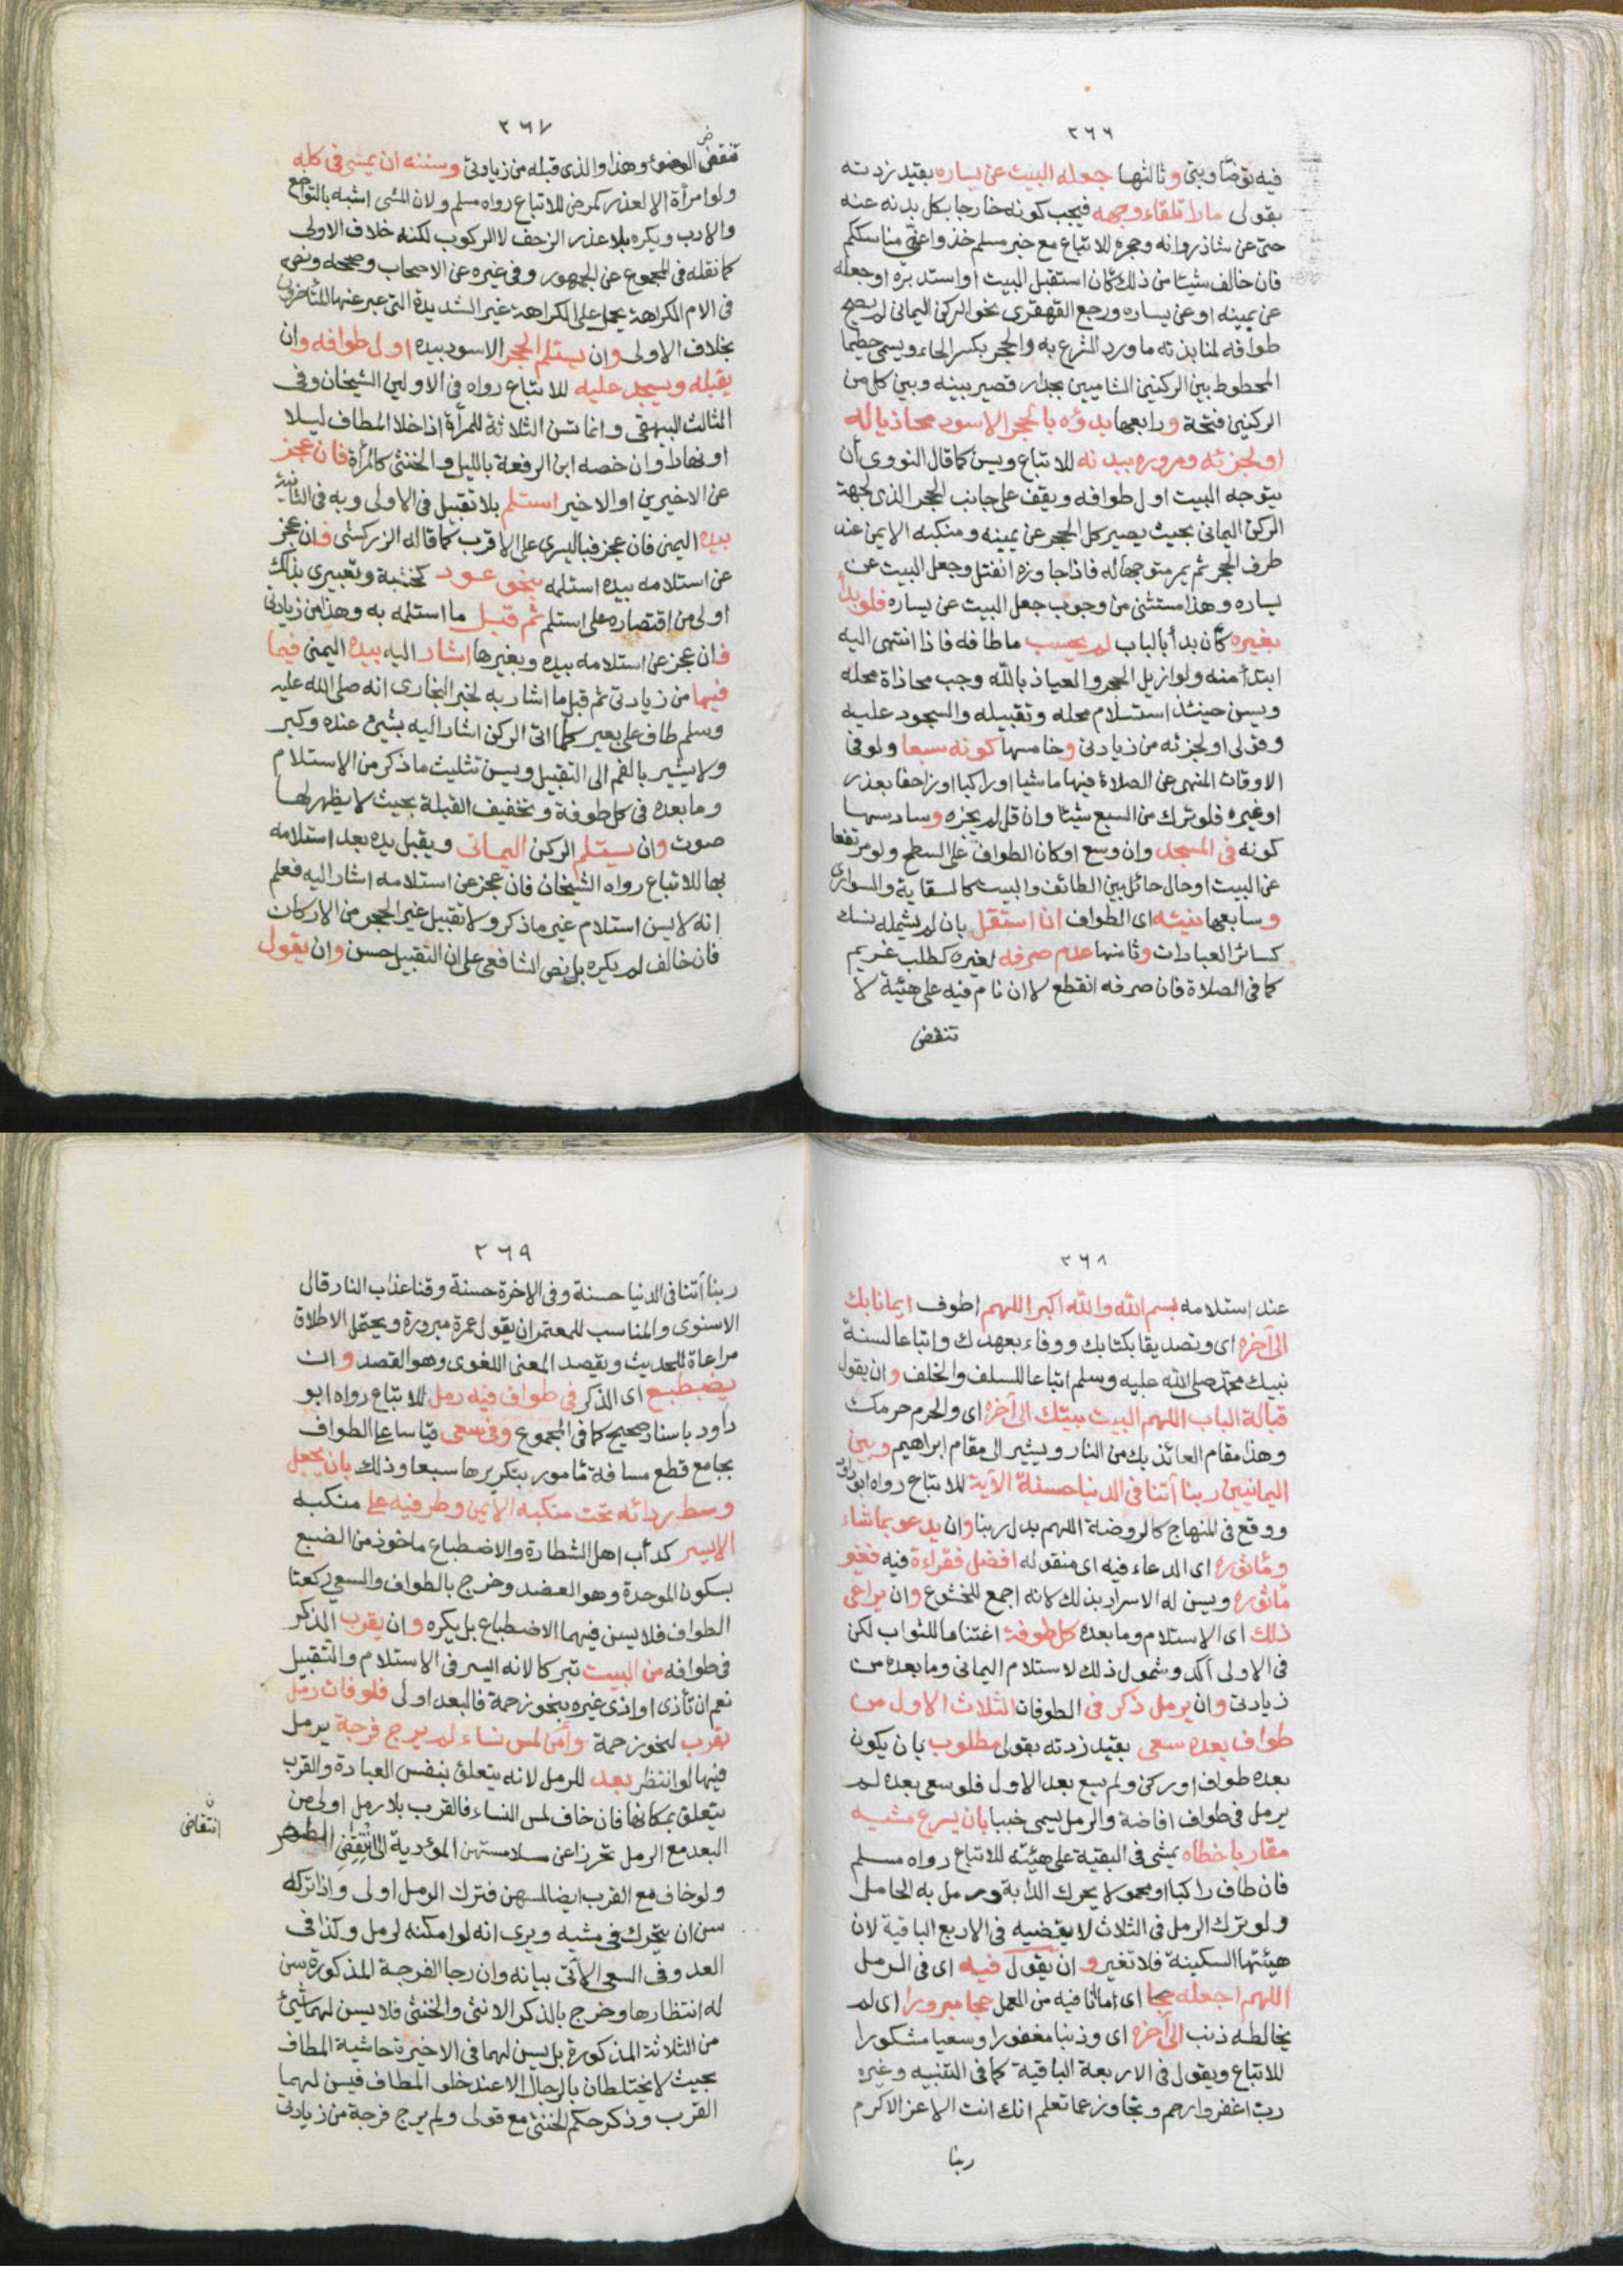 ٢٦٦
فيه توضأ وبنى وثالثها جعله البيت عن يساره بقيد زدته
بقولى مارا تلقاء وجهه فيجب كونه خارجا بكل بدنه عنه
حتى عن شاذروانه وحجره للاتباع مع خبر مسلم خذوا عنى مناسككم
فان خالف شيئا من ذلك كأن استقبل البيت او استدبره او جعله
عن يمينه او عن يساره ورجع القهقرى نحو الركن اليمانى لم يصح
طوافه لمنابذته ما ورد الشرع به والحجر بكسر الحاء ويسمى حطيما
المحطوط بين الركنين الشاميين بجدار قصير بينه وبين كل من
الركنين فتحة ورابعها بدؤه بالحجر الاسود محاذيا له
او لجزئه ومروره ببدنه للاتباع ويسن كما قال النووى أن
يتوجه البيت اول طوافه ويقف على جانب الحجر الذى لجهة
الركن اليمانى بحيث يصير كل الحجر عن يمينه ومنكبه الايمن عند
طرف الحجر ثم يمر متوجها له فاذا جاوزه انفتل وجعل البيت عن
يساره وهذا مستثنى من وجوب جعل البيت عن يساره فلو بدأ
بغيره كأن بدأ بالباب لم يحسب ما طافه فاذا انتهى اليه
ابتدأ منه ولو ازيل الحجر والعياذ بالله وجب محاذاة محله
ويسن حينئذ استلام محله وتقبيله والسجود عليه
وقولى او لجزئه من زيادتى وخامسها كونه سبعا ولو فى
الاوقات المنهى عن الصلاة فيها ماشيا او راكبا او زاحفا بعذر
او غيره فلو ترك من السبع شيئا وان قل لم يجزه وسادسها
كونه فى المسجد وان وسع او كان الطواف على السطح ولو مرتفعا
عن البيت او حال حائل بين الطائف والبيت كالسقاية والسوارى
وسابعها نيته اى الطواف ان استقل بان لم يشمله نسك
كسائر العبادات وثامنها عدم صرفه لغيره كطلب غريم
كما فى الصلاة فان صرفه انقطع لا ان نام فيه على هيئة لا
تنقض
٢٦٧
ض
تنقض الوضوء وهذا والذى قبله من زيادتى وسننه ان يمشى فى كله
ولو امرأة الا لعذر كمرض للاتباع رواه مسلم ولان المشى اشبه بالتواضع
والادب ويكره بلا عذر الزحف لا الركوب لكنه خلاف الاولى
كما نقله فى المجموع عن الجمهور وفى غيره عن الاصحاب وصححه ونصه
فى الام الكراهة يحمل على الكراهة غير الشديدة التى عبر عنها المتأخرون
بخلاف الاولى وان يستلم الحجر الاسود بيده اول طوافه وان
يقبله ويسجد عليه للاتباع رواه فى الاولين الشيخان وفى
الثالث البيهقى وانما تسن الثلاثة للمرأة اذا خلا المطاف ليلا
او نهارا وان خصه ابن الرفعة بالليل والخنثى كالمرأة فان عجز
عن الاخيرين او الاخير استلم بلا تقبيل فى الاولى وبه فى الثانية
بيده اليمنى فان عجز فباليسرى على الاقرب كما قاله الزركشى فان عجز
عن استلامه بيده استلمه بنحو عود كخشبة وتعبيرى بذلك
اولى من اقتصاره على استلم ثم قبل ما استلمه به وهذا من زيادتى
فان عجز عن استلامه بيده وبغيرها اشار اليه بيده اليمنى فيما
فيها من زيادتى ثم قبل ما اشار به لخبر البخارى انه صلى الله عليه
وسلم طاف على بعير كلما اتى الركن اشار اليه بشىء عنده وكبر
ولا يشير بالفم الى التقبيل ويسن تثليث ما ذكر من الاستلام
وما بعده فى كل طوفة وتخفيف القبلة بحيث لا يظهر لها
صوت وان يستلم الركن اليمانى ويقبل يده بعد استلامه
بها للاتباع رواه الشيخان فان عجز عن استلامه اشار اليه فعلم
انه لا يسن استلام غير ما ذكر ولا تقبيل غير الحجر من الاركان
فان خالف لم يكره بل نص الشافعى على ان التقبيل حسن وان يقول
٢٦٨
عند استلامه بسم الله والله اكبر اللهم اطوف ايمانا بك
الى آخره اى وتصديقا بكتابك ووفاء بعهدك واتباعا لسنة
نبيك محمد صلى الله عليه وسلم اتباعا للسلف والخلف وان يقول
قبالة الباب اللهم البيت بيتك الى آخره اى والحرم حرمك
وهذا مقام العائذ بك من النار ويشير الى مقام ابراهيم وبين
اليمانيين ربنا آتنا فى الدنيا حسنة الآية للاتباع رواه ابو داود
ووقع فى المنهاج كالروضة اللهم بدل ربنا وان يدعو بما شاء
ومأثوره اى الدعاء فيه اى منقوله افضل فقراءة فيه فغير
مأثوره ويسن له الاسرار بذلك لانه اجمع للخشوع وان يراعى
ذلك اى الاستلام وما بعده كل طوفة اغتناما للثواب لكن
فى الاولى آكد وشمول ذلك لاستلام اليمانى وما بعده من
زيادتى وان يرمل ذكر فى الطوفات الثلاث الاول من
طواف بعده سعى بقيد زدته بقولى مطلوب بان يكون
بعده طواف او ركن ولم يسع بعد الاول فلو سعى بعده لم
يرمل فى طواف افاضة والرمل يسمى خببا بان يسرع مشيه
مقاربا خطاه يمشى فى البقية على هيئته للاتباع رواه مسلم
فان طاف راكبا او محمولا يحرك الدابة ورمل به الحامل
ولو ترك الرمل فى الثلاث لا يقضيه فى الاربع الباقية لان
هيئتها السكينة فلا تغير وان يقول فيه اى فى الرمل
اللهم اجعله حجا اى ما انا فيه من العمل حجا مبرورا اى لم
يخالطه ذنب الى آخره اى وذنبا مغفورا وسعيا مشكورا
للاتباع ويقول فى الاربعة الباقية كما فى التنبيه وغيره
رب اغفر وارحم وتجاوز عما تعلم انك انت الاعز الاكرم
ربنا
٢٦٩
ربنا آتنا فى الدنيا حسنة وفى الاخرة حسنة وقنا عذاب النار قال
الاسنوى والمناسب للمعتمر ان يقول عمرة مبرورة ويحتمل الاطلاق
مراعاة للحديث ويقصد المعنى اللغوى وهو القصد وان
يضطبع اى الذكر فى طواف فيه رمل للاتباع رواه ابو
داود باسناد صحيح كما فى المجموع وفى سعى قياسا على الطواف
بجامع قطع مسافة مأمور بتكريرها سبعا وذلك بان يجعل
وسط ردائه تحت منكبه الايمن وطرفيه على منكبه
الايسر كدأب اهل الشطارة والاضطباع مأخوذ من الضبع
بسكون الموحدة وهو العضد وخرج بالطواف والسعى ركعتا
الطواف فلا يسن فيهما الاضطباع بل يكره وان يقرب الذكر
فى طوافه من البيت تبركا لانه ايسر فى الاستلام والتقبيل
نعم ان تأذى او اذى غيره بنحو زحمة فالبعد اولى فلو فات رمل
بقرب لنحو زحمة وأمن لمس نساء لم يرج فرجة يرمل
فيها لو انتظر بعد للرمل لانه يتعلق بنفس العبادة والقرب
يتعلق بمكانها فان خاف لمس النساء فالقرب بلا رمل اولى من
البعد مع الرمل تحرزا عن ملامستهن المؤدية الى انتقض الطهر
ن
انتقاض
ولو خاف مع القرب ايضا لمسهن فترك الرمل اولى واذا تركه
سن ان يتحرك فى مشيه ويرى انه لو امكنه لرمل وكذا فى
العدو فى السعى الآتى بيانه وان رجا الفرجة المذكورة سن
له انتظارها وخرج بالذكر الانثى والخنثى فلا يسن لهما شىء
من الثلاثة المذكورة بل يسن لهما فى الاخيرة حاشية المطاف
بحيث لا يختلطان بالرجال الا عند خلو المطاف فيسن لهما
القرب وذكر حكم الخنثى مع قولى ولم يرج فرجة من زيادتى